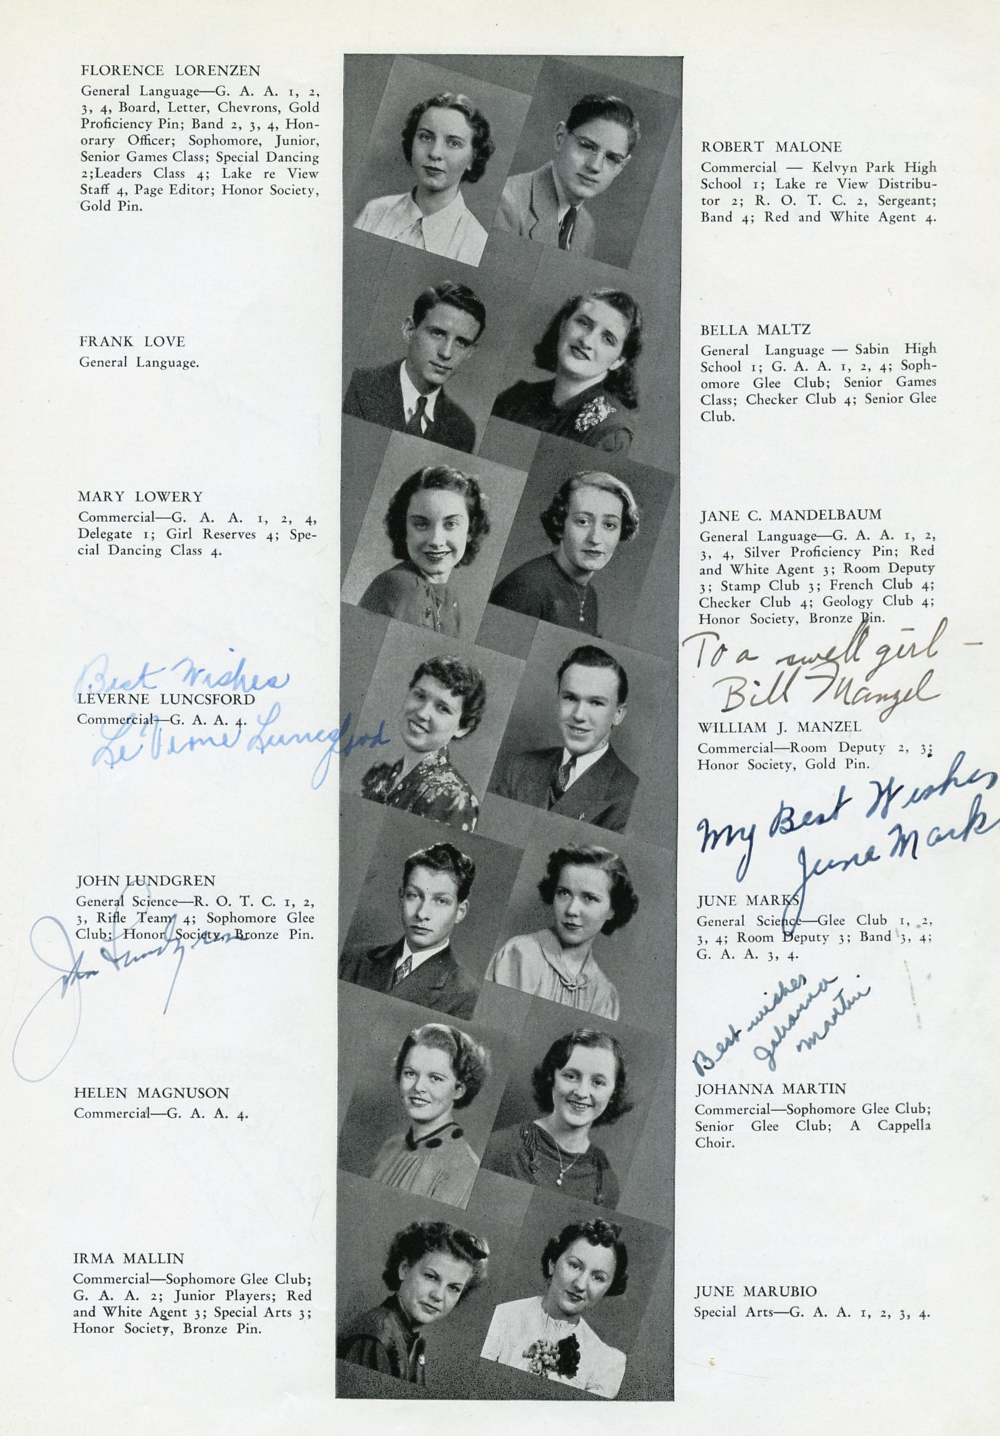 FLORENCE LORENZEN
General Language—G. A. A. 1, 2,
3, 4, Board, Letter, Chevrons, Gold
Proficiency Pin; Band 2, 3, 4, Hon-
orary Officer; Sophomore, Junior,
Senior Games Class; Special Dancing
2;Leaders Class 4; Lake re View
Staff 4, Page Editor; Honor Society,
Gold Pin.
FRANK LOVE
General Language.
MARY LOWERY
Commercial—G. A. A. 1, 2, 4,
Delegate 1; Girl Reserves 4; Spe-
cial Dancing Class 4.
Best Wishes
LEVERNE LUNCSFORD
Commercial—G. A. A. 4.
Le Verne Luncsford
JOHN LUNDGREN
General Science—R. O. T. C. 1, 2,
3, Rifle Team 4; Sophomore Glee
Club; Honor Society, Bronze Pin.
John Lundgren
HELEN MAGNUSON
Commercial—G. A. A. 4.
IRMA MALLIN
Commercial—Sophomore Glee Club;
G. A. A. 2; Junior Players; Red
and White Agent 3; Special Arts 3;
Honor Society, Bronze Pin.
ROBERT MALONE
Commercial — Kelvyn Park High
School 1; Lake re View Distribu-
tor 2; R. O. T. C. 2, Sergeant;
Band 4; Red and White Agent 4.
BELLA MALTZ
General Language — Sabin High
School 1; G. A. A. 1, 2, 4; Soph-
omore Glee Club; Senior Games
Class; Checker Club 4; Senior Glee
Club.
JANE C. MANDELBAUM
General Language—G. A. A. 1, 2,
3, 4, Silver Proficiency Pin; Red
and White Agent 3; Room Deputy
3; Stamp Club 3; French Club 4;
Checker Club 4; Geology Club 4;
Honor Society, Bronze Pin.
To a swell girl —
Bill Manzel
WILLIAM J. MANZEL
Commercial—Room Deputy 2, 3;
Honor Society, Gold Pin.
My Best Wishes
June Mark
JUNE MARKS
General Science—Glee Club 1, 2,
3, 4; Room Deputy 3; Band 3, 4;
G. A. A. 3, 4.
Best wishes
Johanna
Martin
JOHANNA MARTIN
Commercial—Sophomore Glee Club;
Senior Glee Club; A Cappella
Choir.
JUNE MARUBIO
Special Arts—G. A. A. 1, 2, 3, 4.